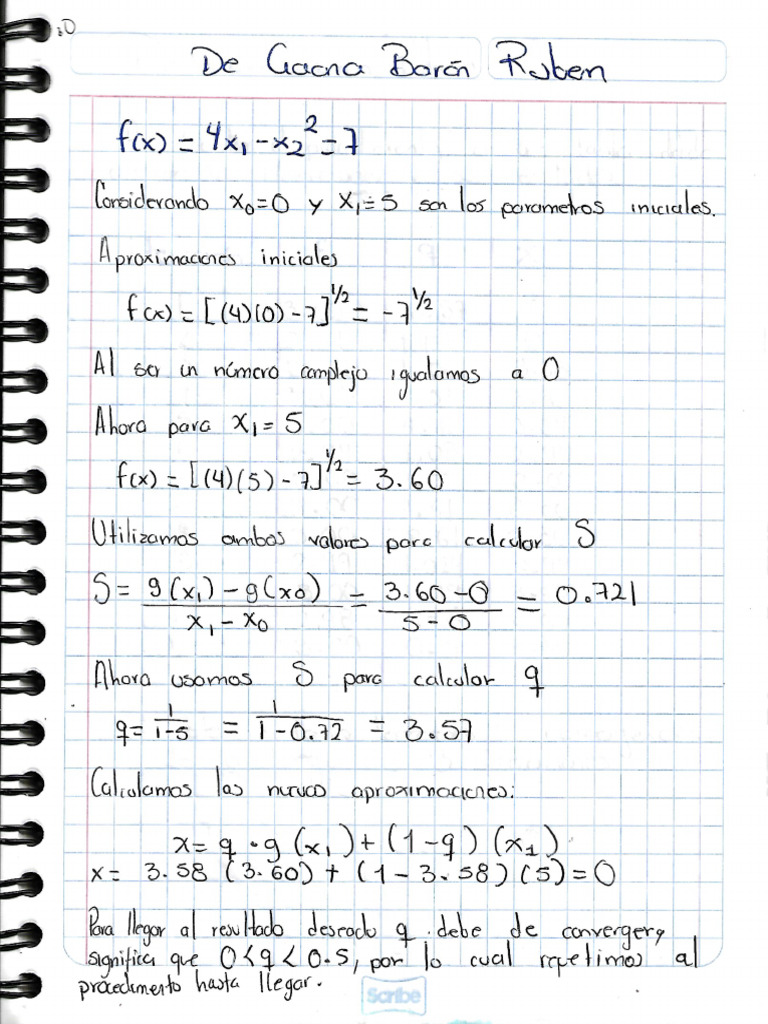 De Gaona Barón Ruben
f(x) = 4x₁ - x₂² = 7
Considerando x₀=0 y x₁=5 son los parametros iniciales.
Aproximaciones iniciales
f(x) = [(4)(0) - 7]^1/2 = -7^1/2
Al ser un número complejo igualamos a 0
Ahora para x₁ = 5
f(x) = [(4)(5) - 7]^1/2 = 3.60
Utilizamos ambos valores para calcular S
S = g(x₁) - g(x0) / x₁ - x₀ = 3.60 - 0 / 5 - 0 = 0.721
Ahora usamos S para calcular q
q = 1 / 1-S = 1 / 1 - 0.72 = 3.57
Calculamos las nuevas aproximaciones:
x = q · g (x₁) + (1 - q) (x₁)
x = 3.58 (3.60) + (1 - 3.58) (5) = 0
Para llegar al resultado deseado q debe de converger,
significa que 0 < q < 0.5, por lo cual repetimos al
procedimento hasta llegar.
Scribe